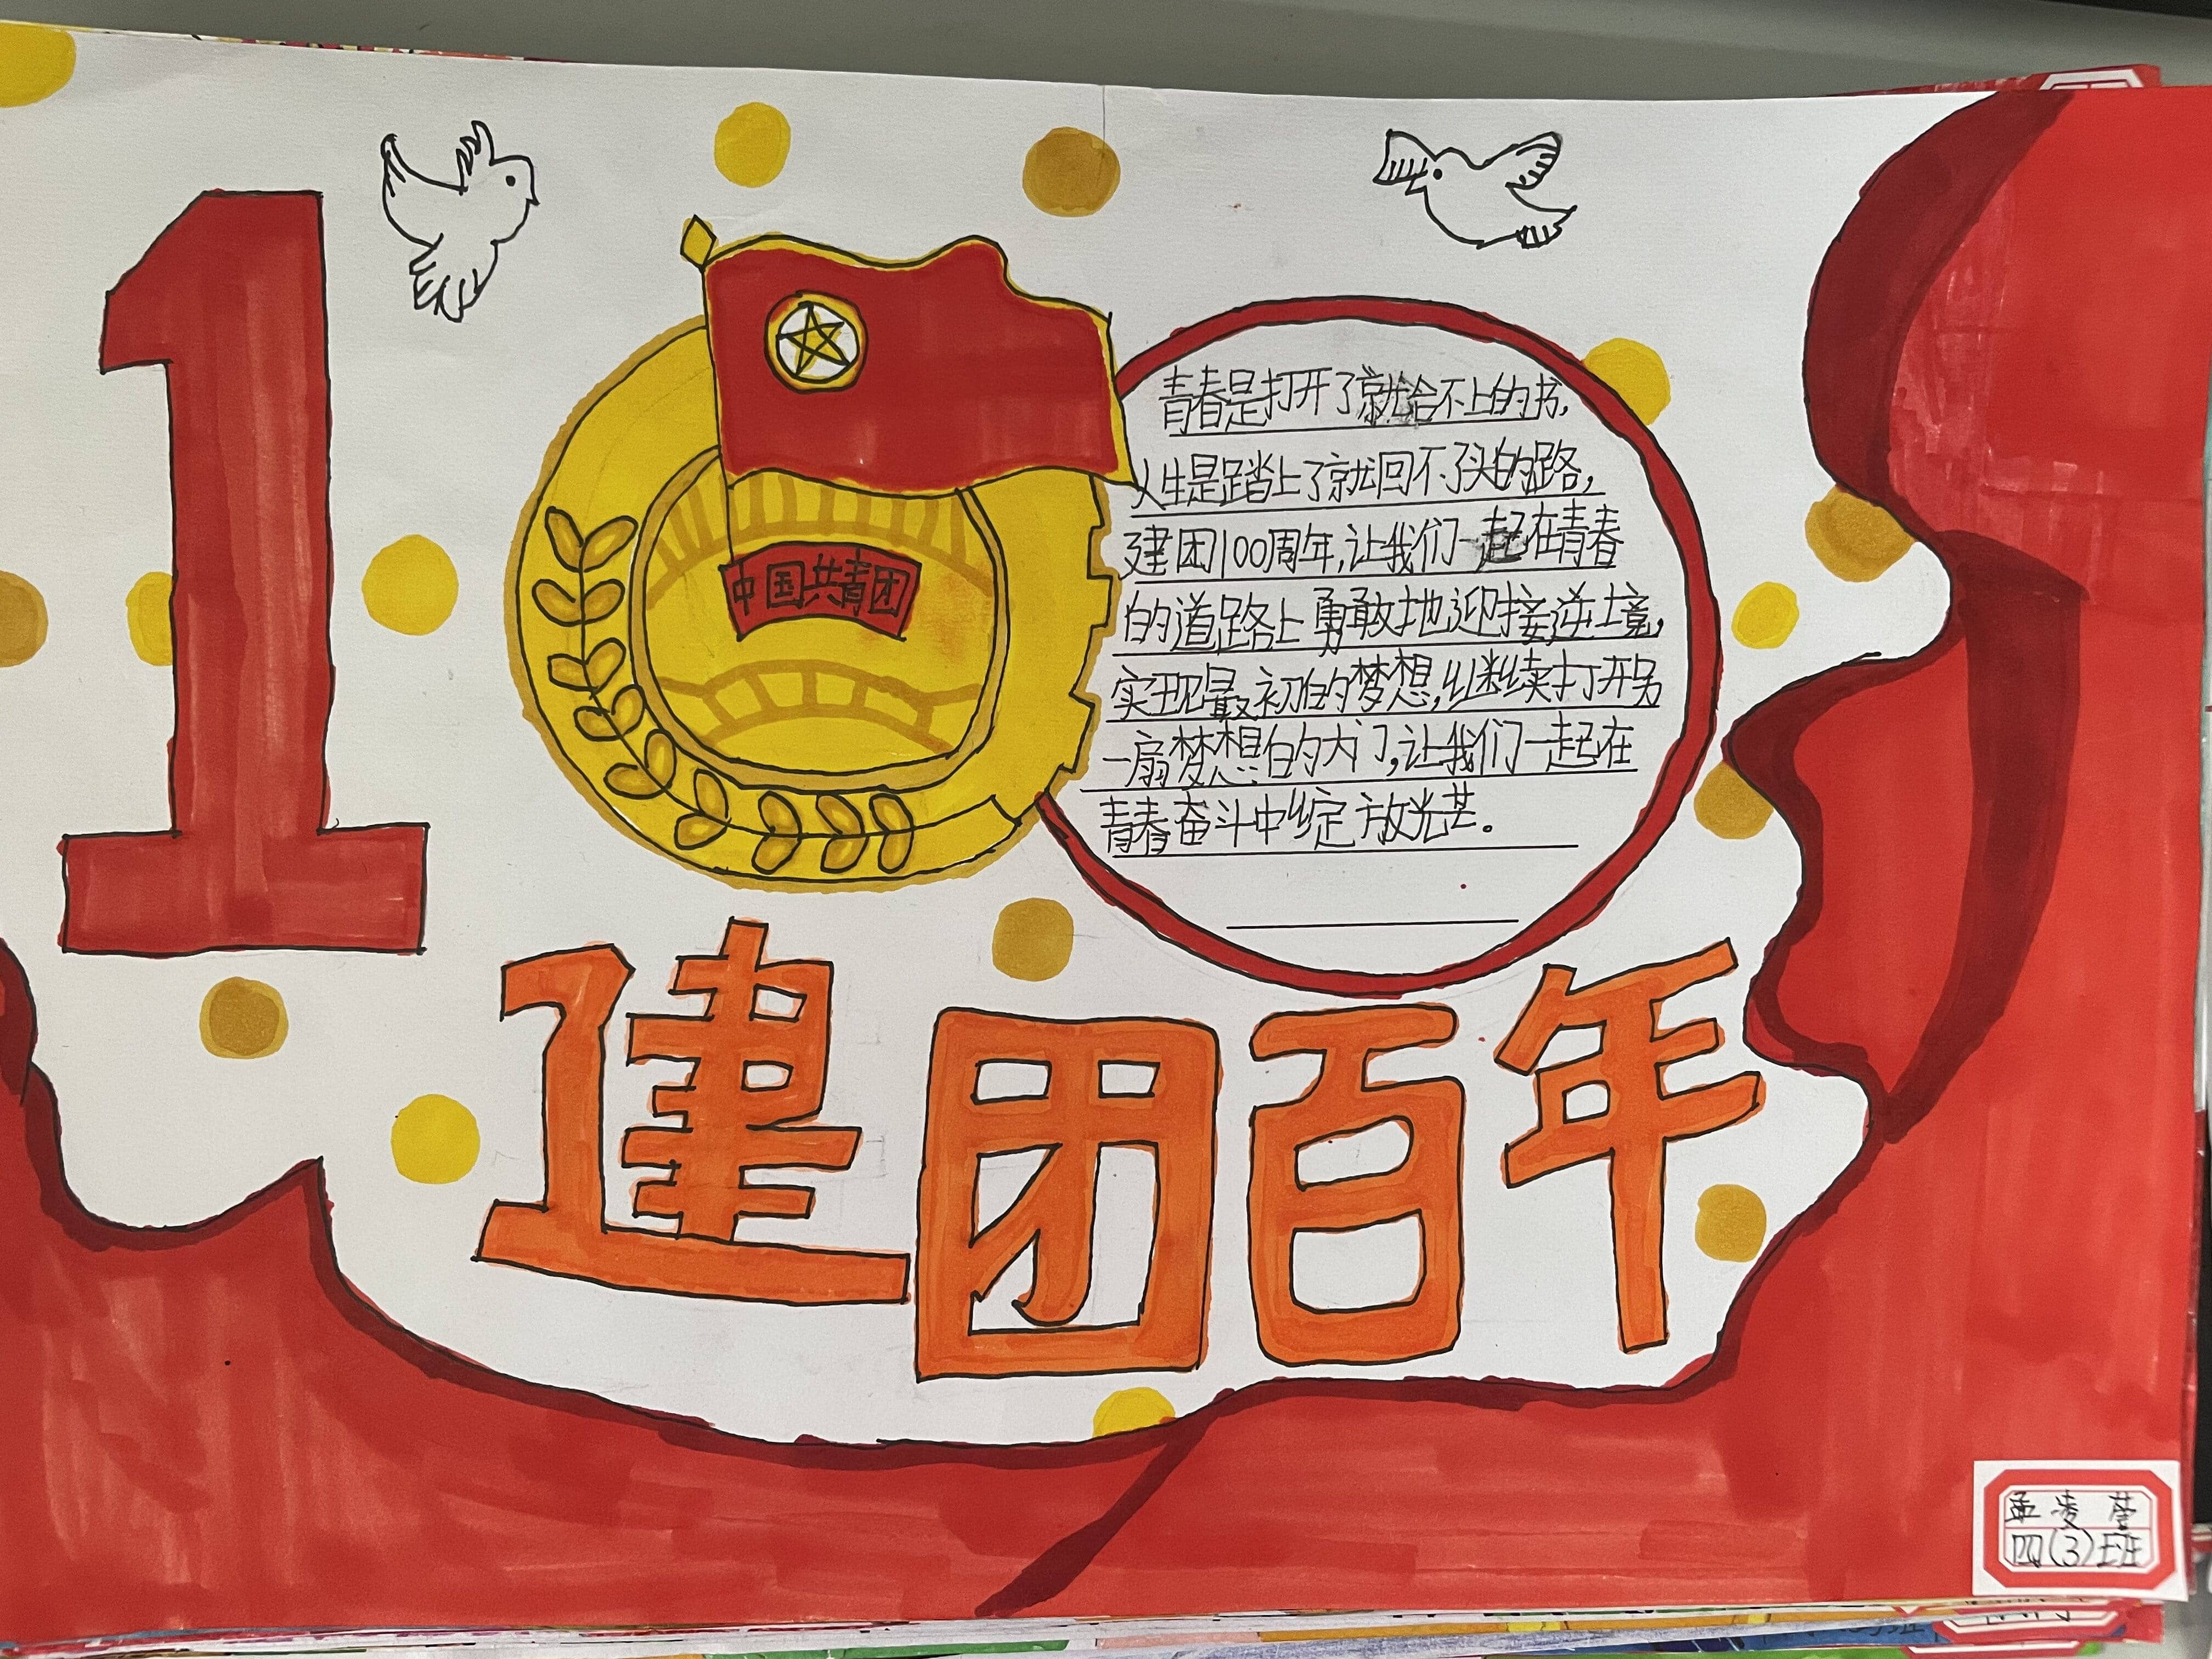 1
青春是打开了就合不上的书,
人生是踏上了就回不了头的路,
建团100周年,让我们一起在青春
的道路上勇敢地迎接逆境,
实现最初的梦想,继续打开另
一扇梦想的大门,让我们一起在
青春奋斗中绽放光芒。
中国共青团
建团百年
孟凌莹
四(3)班